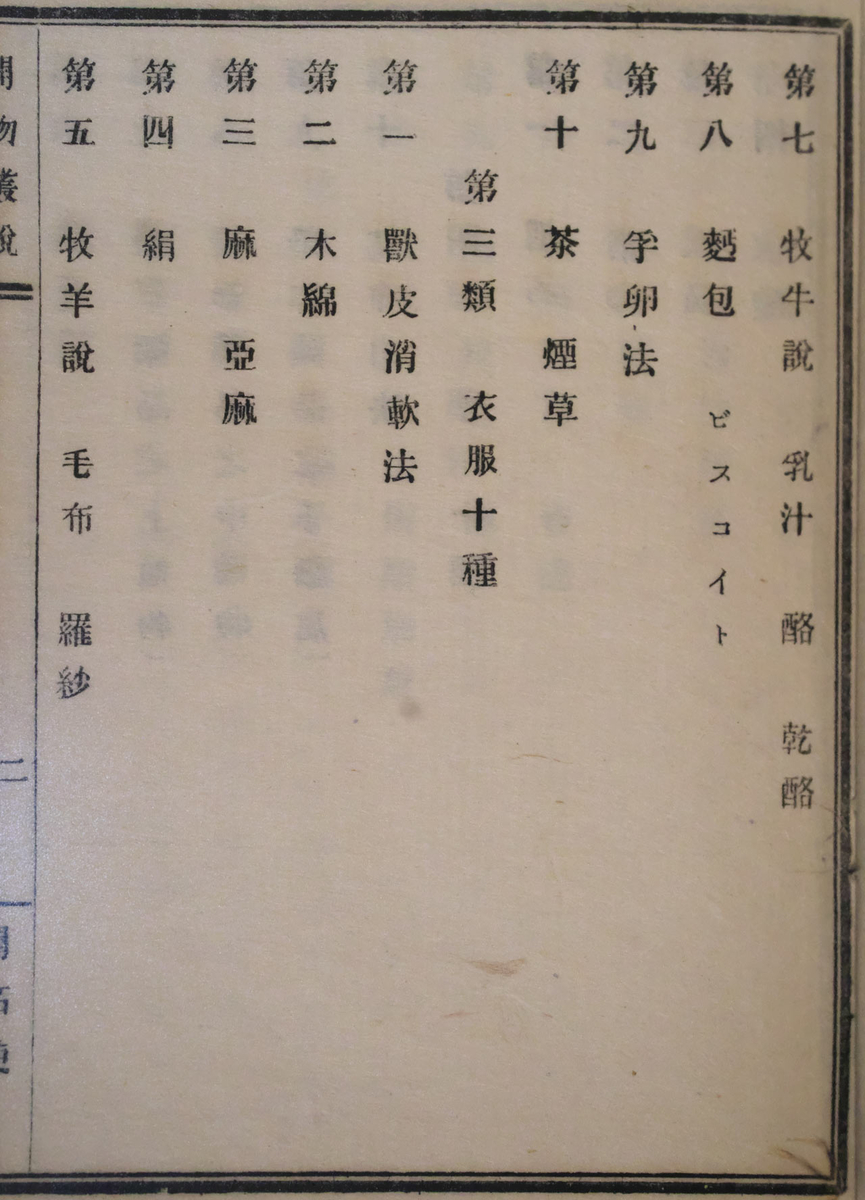 第七　牧牛說　乳汁　酪　乾酪
第八　麪包　ビスコイト
第九　孚卵法
第十　茶　煙草
第三類　衣服十種
第一　獸皮消軟法
第二　木綿
第三　麻　亞麻
第四　絹
第五　牧羊說　毛布　羅紗
開物叢說　二